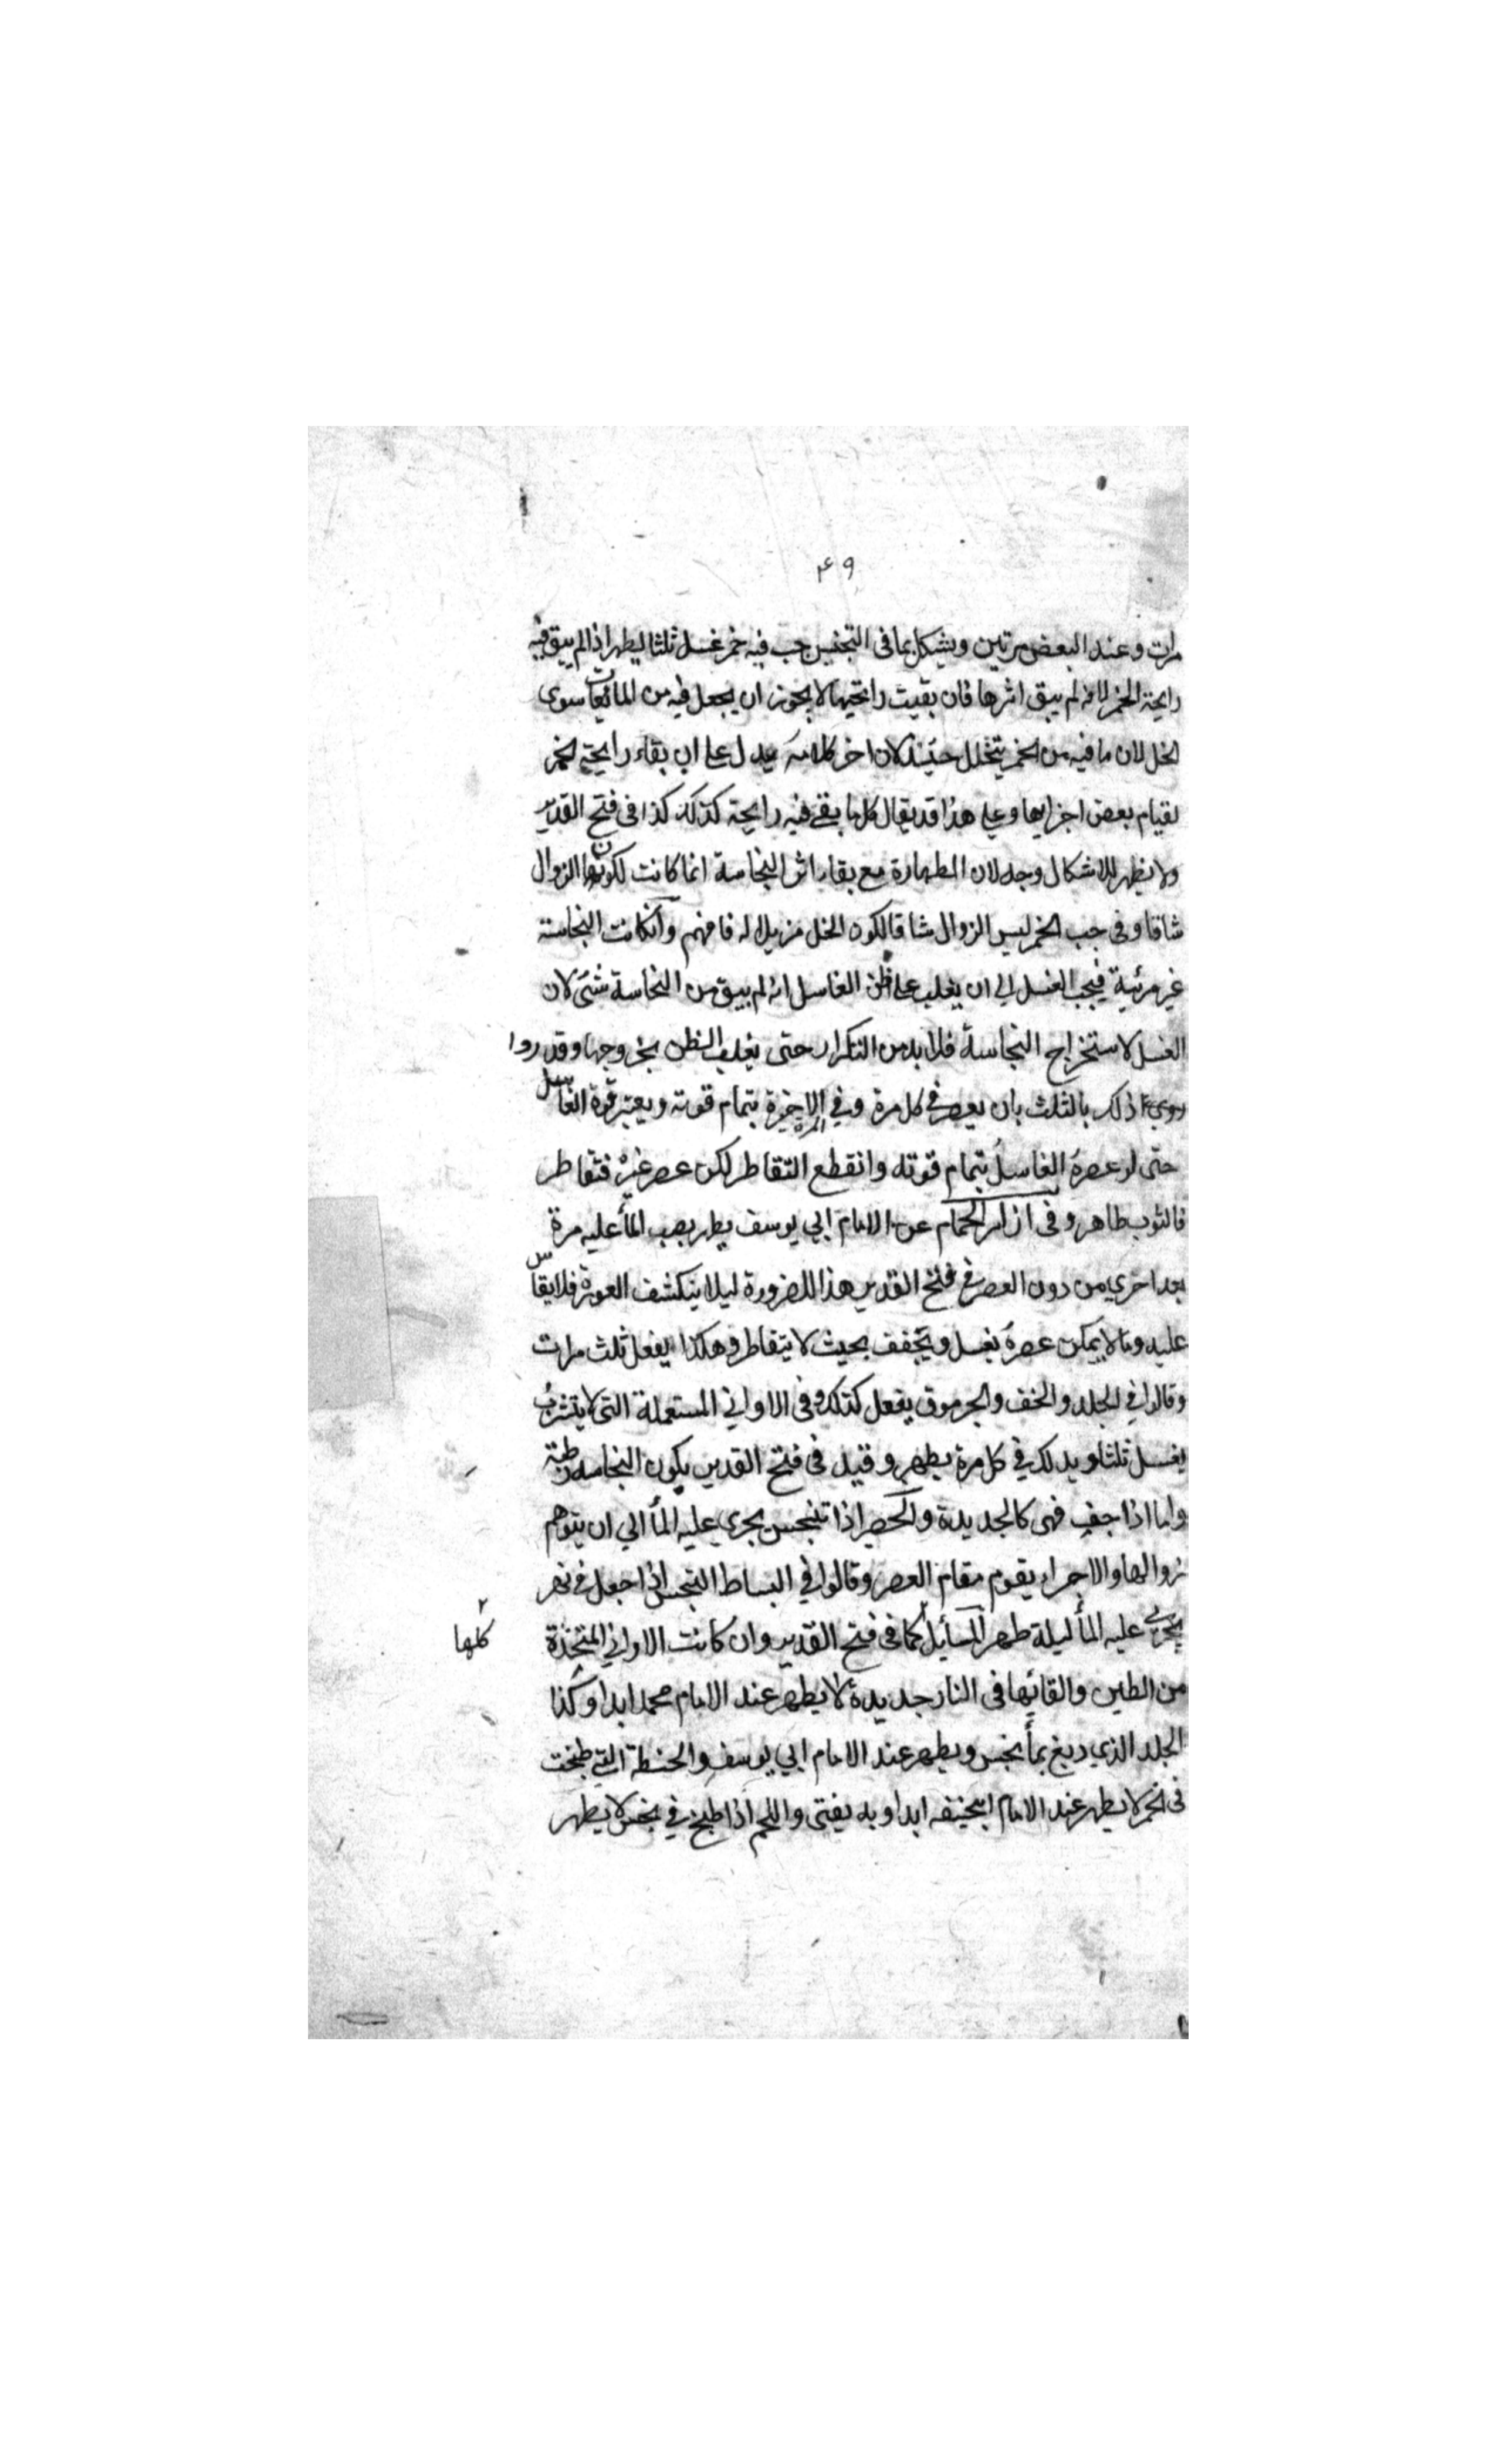 ۴۹
مرات وعند البعض مرتين ويشكل بما فى التجنيس جب فيه خمر غسل ثلثا يطهر اذا لم يبق فيه
رايحة الخمر لانه لم يبق اثرها فان بقيت رايحتها لا يجوز ان يجعل فيه من المائعات سوى
الخل لان ما فيه من الخمر يتخلل حينئذ لان اخر كلامه يدل على ان بقاء رايحة الخمر
لقيام بعض اجزايها وعلى هذا قد يقال كل ما بقى فيه رايحة كذلك كذا فى فتح القدير
ولا يظهر للاشكال وجه لان الطهارة مع بقاء اثر النجاسة انما كانت لكون الزوال
شاقا وفى جب الخمر ليس الزوال شاقا لكون الخل مزيلا له فافهم وانكانت النجاسة
غير مرئية فيجب الغسل الى ان يغلب على ظن الغاسل انه لم يبق من النجاسة شئ لان
الغسل لاستخراج النجاسة فلا بد من التكرار حتى يغلب الظن بخروجها وقدروا
ذلك بالثلث بان يعصر فى كل مرة وفي المرة الاخيرة بتمام قوته ويعتبر قوة الغاسل
حتى لو عصره الغاسل بتمام قوته وانقطع التقاطر لكن عصر غيره فتقاطر
فالثوب طاهر وفى ازار الحمام عن الامام ابي يوسف يطهر بصب الماء عليه مرة
بعد اخري من دون العصر فى فتح القدير هذا للضرورة ليلا ينكشف العورة فلا يقاس
عليه وما لا يمكن عصره يغسل ويجفف بحيث لا يتقاطر وهكذا يفعل ثلث مرات
وقالوا في الجلد والخف والجرموق يفعل كذلك وفى الاواني المستعملة التى لا يتشرب
يغسل ثلثا ويدلك في كل مرة يطهر وقيد فى فتح القدير بكون النجاسة رطبة
واما اذا جف فهى كالجديدة والحصير اذا تنجس يجرى عليه الماء الي ان يتوهم
زوالها والاجراء يقوم مقام العصر وقالوا في البساط النجس اذا جعل فى نهر
يجرى عليه الماء ليلة طهر المسايل كما فى فتح القدير وان كانت الاواني المتخذة
كلها
من الطين والقائها فى النار جديدة لا يطهر عند الامام محمد ابدا وكذا
الجلد الذي دبغ بماء نجس ويطهر عند الامام ابي يوسف والحنطة التي طبخت
فى الخمر لا يطهر عند الامام ابيحنيفه ابدا وبه يفتى واللحم اذا طبخ في نجس لا يطهر